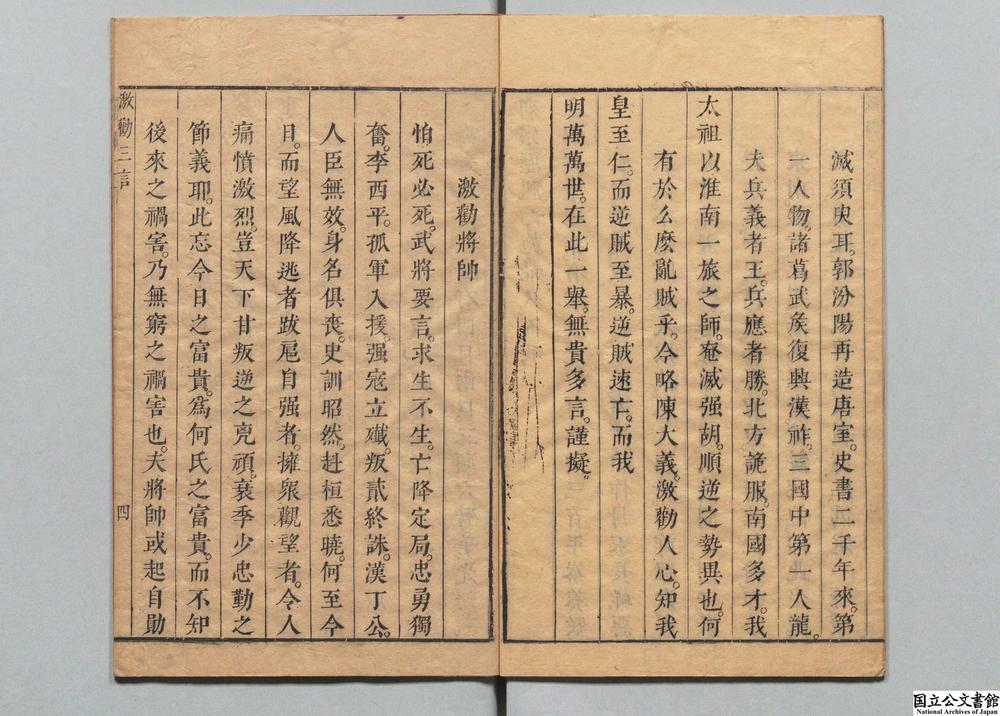 滅須臾耳。郭汾陽再造唐室。史書二千年來。第
一人物。諸葛武矦復興漢祚。三國中第一人龍。
夫兵義者王。兵應者勝。北方詭服。南國多才。我
太祖以淮南一旅之師。奄滅强胡。順逆之勢異也。何
有於么麽亂賊乎。今略陳大義。激勸人心。知我
皇至仁。而逆賊至暴。逆賊速亡。而我
明萬萬世。在此一舉。無貴多言。謹擬。
激勸將帥
怕死必死。武將要言。求生不生。亡降定局。忠勇獨
奮。李西平。孤軍入援。强寇立殲。叛貳終誅。漢丁公。
人臣無效。身名俱喪。史訓昭然。赳桓悉曉。何至今
日。而望風降逃者。跋扈自强者。擁衆觀望者。令人
痛憤激烈。豈天下甘叛逆之兇頑。衰季少忠勤之
節義耶。此忘今日之富貴。爲何氏之富貴。而不知
後來之禍害。乃無窮之禍害也。夫將帥或起自勛
激勸三言
四
国立公文書館
National Archives of Japan